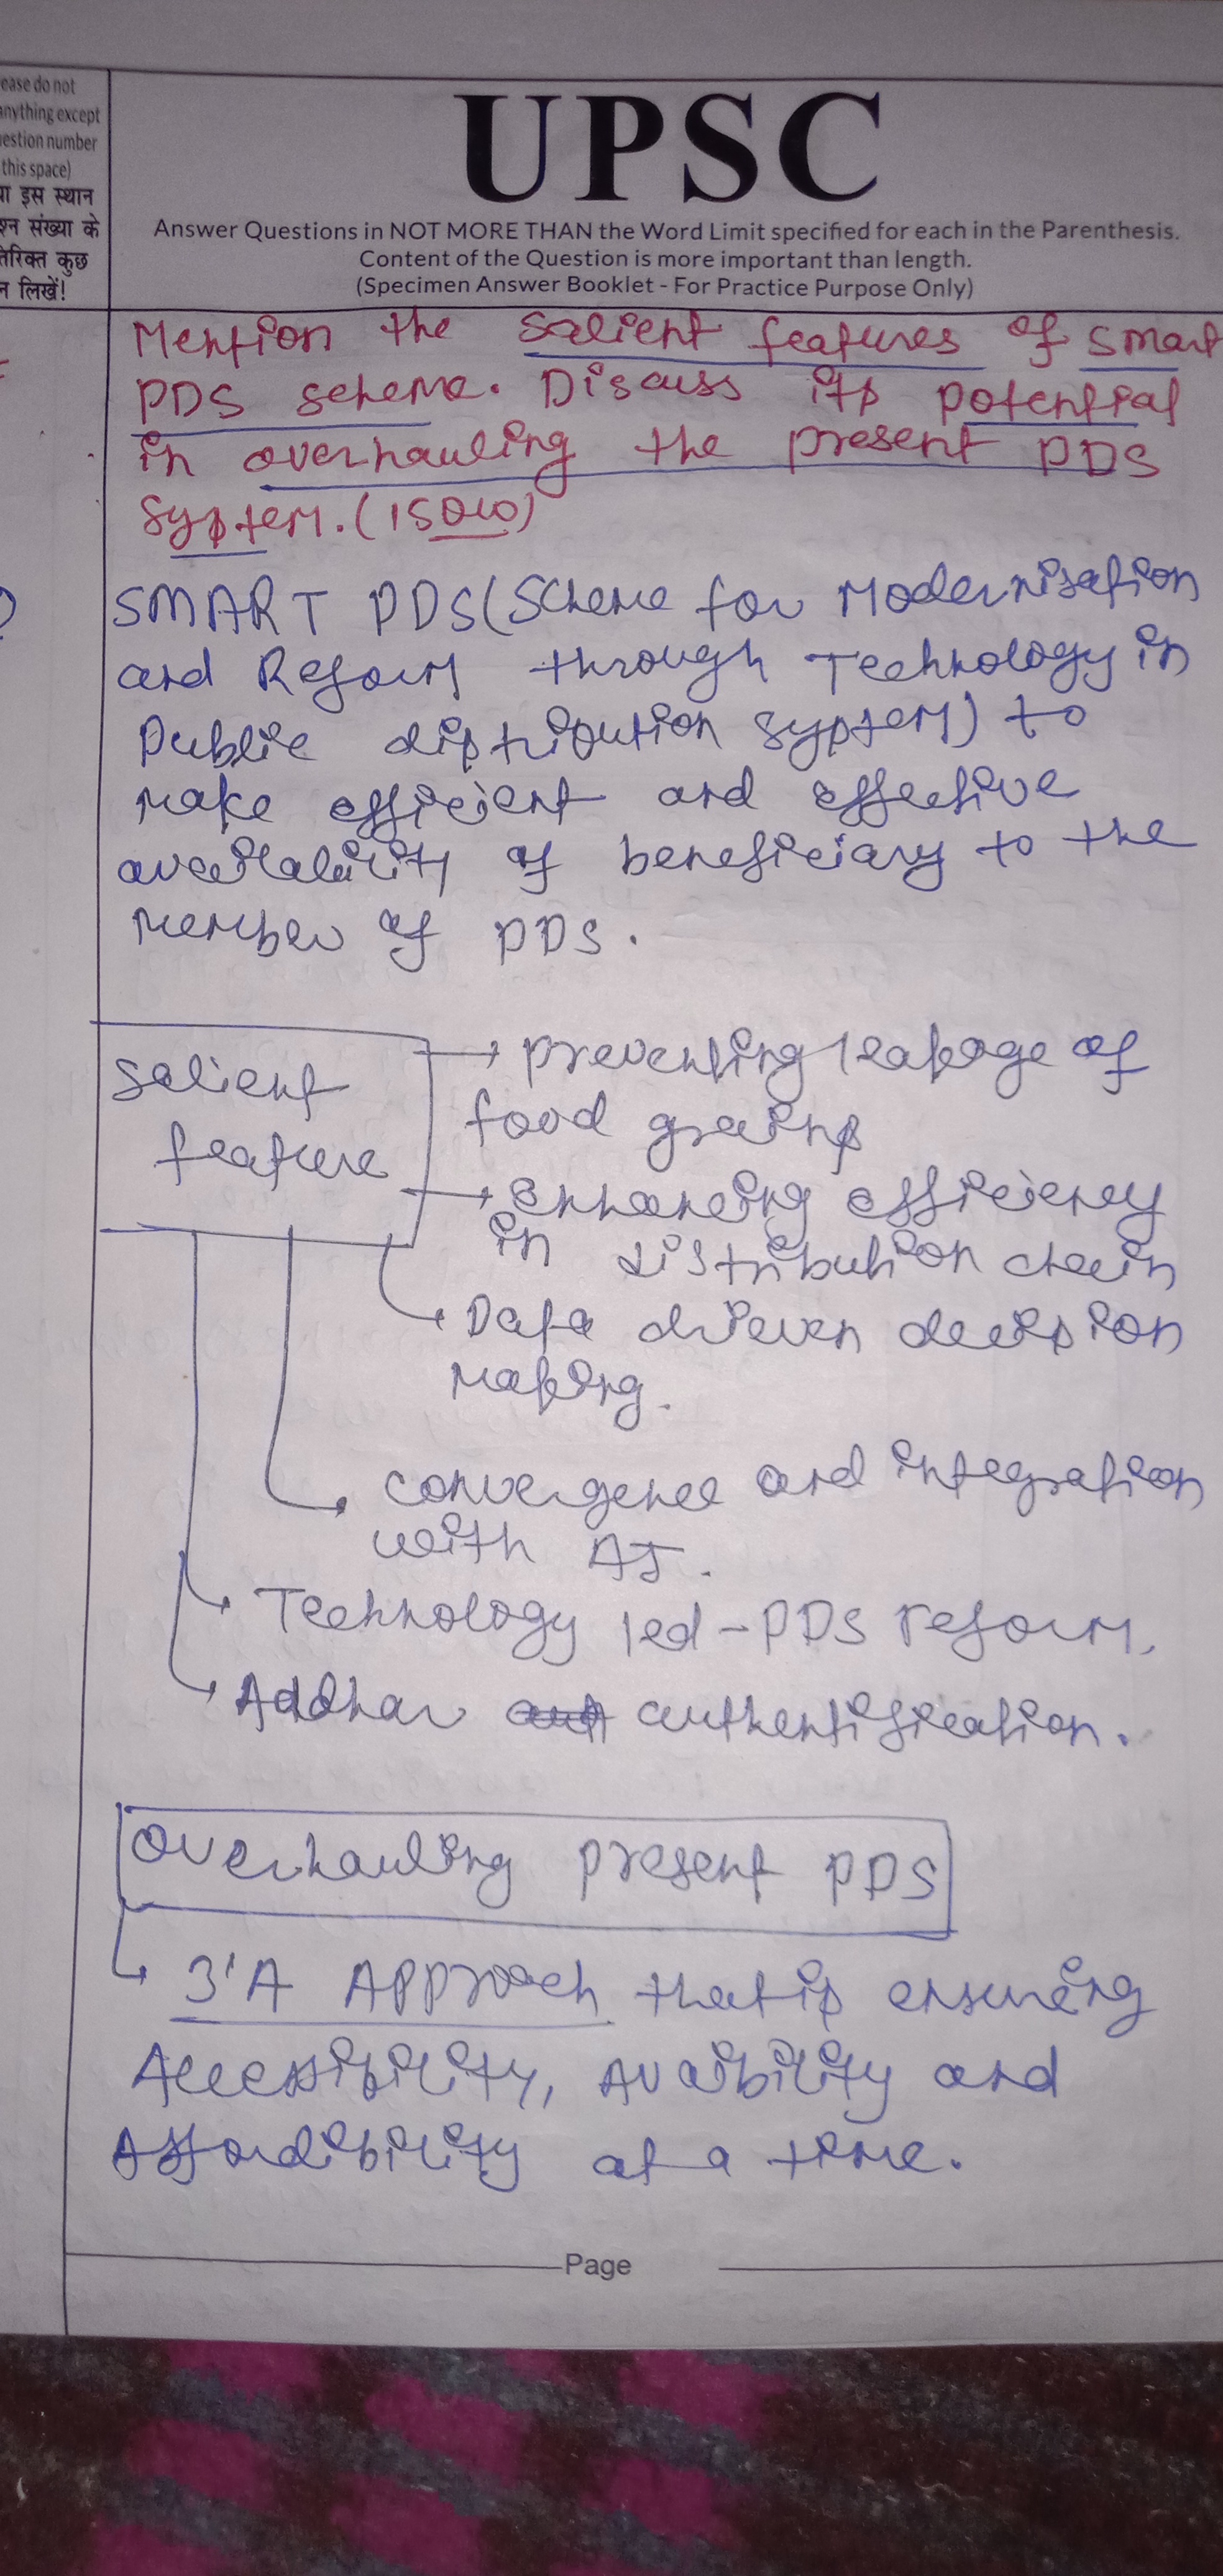 ease do not
anything except
uestion number
this space)
या इस स्थान
श्न संख्या के
तिरिक्त कुछ
न लिखें!
UPSC
Answer Questions in NOT MORE THAN the Word Limit specified for each in the Parenthesis.
Content of the Question is more important than length.
(Specimen Answer Booklet - For Practice Purpose Only)
Mention the salient features of smart
PDS scheme. Discuss its potential
in overhauling the present PDS
system. (150w)
SMART PDS (Scheme for Modernisation
and Reform through Technology in
Public distribution system) to
make efficient and effective
availability of beneficiary to the
member of PDS.
salient
feature
→ preventing leakage of
food grains
→ Enhancing efficiency
in distribution chain
→ Data driven decision
making.
→ convergence and integration
with AI.
→ Technology led-PDS reform.
→ Addhar authentification.
overhauling present PDS
→ 3'A Approach that is ensuring
Accessibility, Avaibility and
Affordibility at a time.
Page